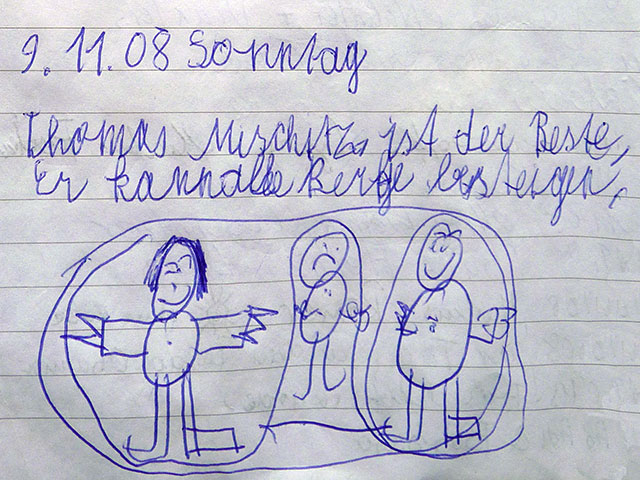 9.11.08 Sonntag
Thomas Mischitz ist der Beste,
Er kann alle Berge besteigen,